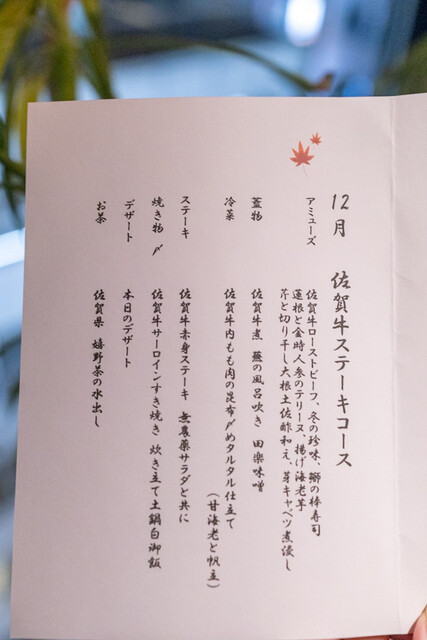 12月 佐賀牛ステーキコース
アミューズ 佐賀牛ローストビーフ、冬の珍味、鰤の棒寿司
蓮根と金時人参のテリーヌ、揚げ海老芋
芹と切り干し大根土佐酢和え、芽キャベツ煮浸し
蓋物 佐賀牛煮 蕪の風呂吹き 田楽味噌
冷菜 佐賀牛内もも肉の昆布〆めタルタル仕立て
(甘海老と帆立)
ステーキ 佐賀牛赤身ステーキ 無農薬サラダと共に
焼き物〆 佐賀牛サーロインすき焼き 炊き立て土鍋白御飯
デザート 本日のデザート
お茶 佐賀県 嬉野茶の水出し